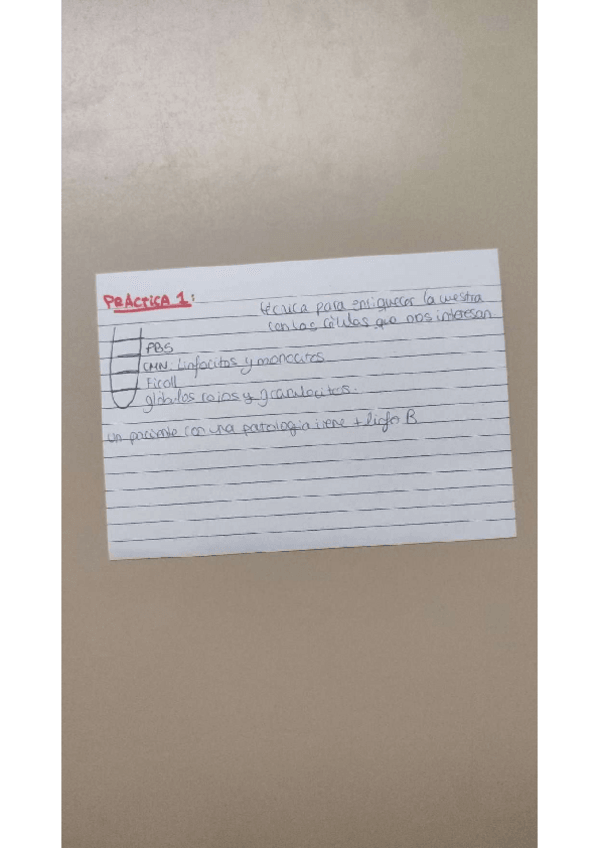 PRÁCTICA 1:
técnica para enriquecer la muestra
con las células que nos interesan
PBS
CMN: Linfocitos y monocitos
Ficoll
glóbulos rojos y granulocitos.
un paciente con una patología tiene + linfo B